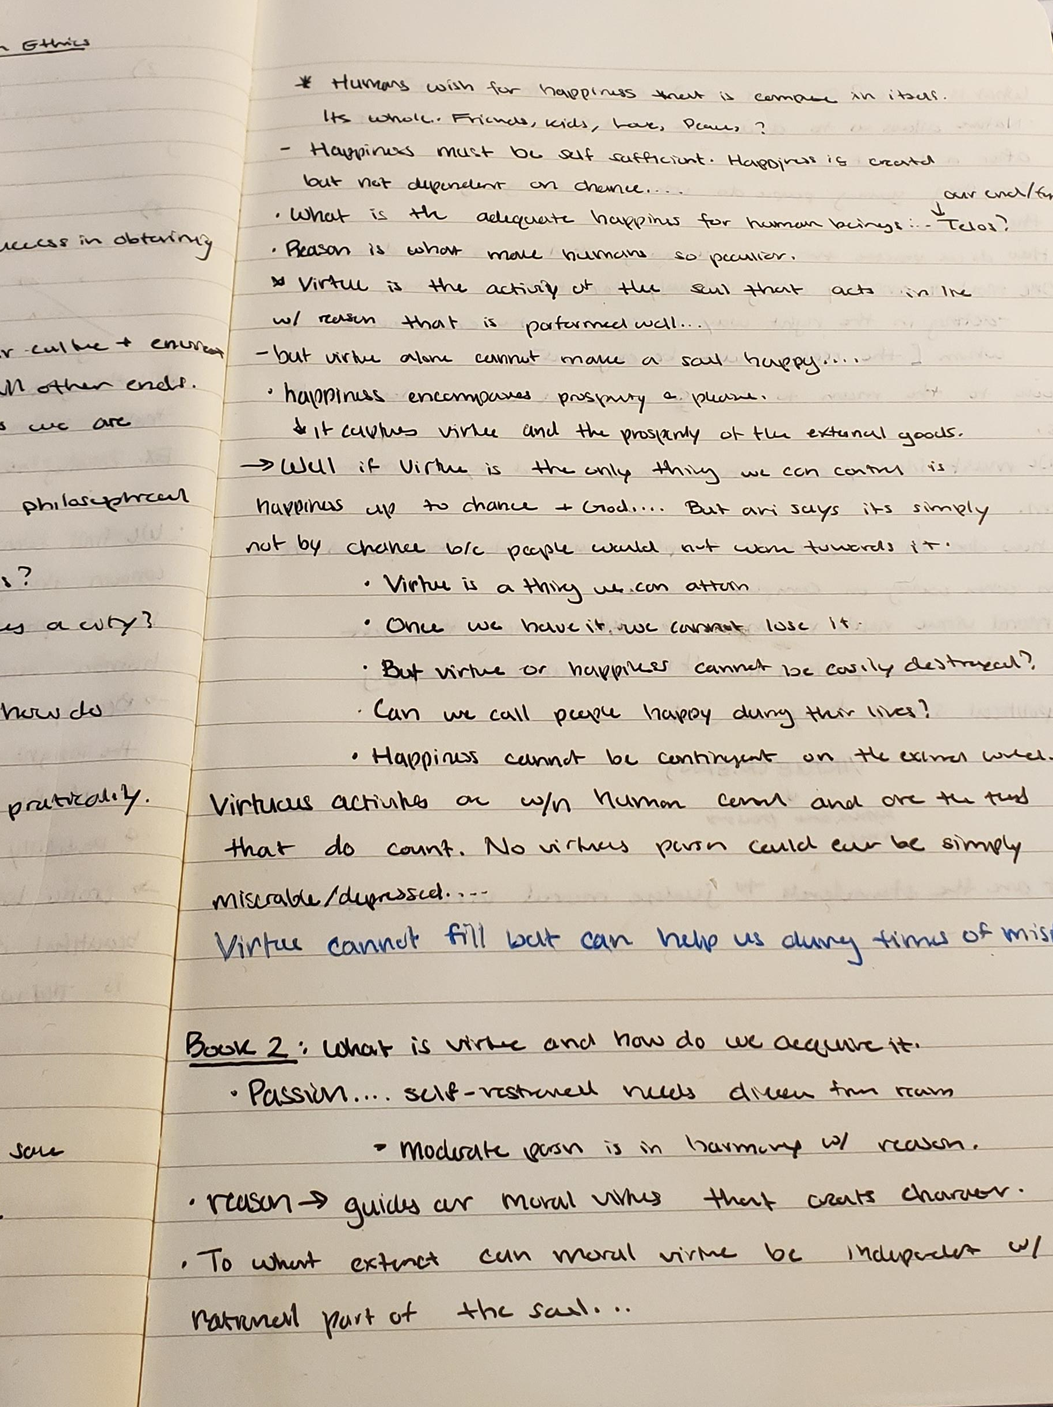 n Ethics
uccess in obtaining
r culture +
ll other ends.
s we are
philosophical
s?
es a city?
how do
practicality.
* Humans wish for happiness that is in itself.
Its whole. Friends, kids, Love, ?
- Happiness must be self sufficient. Happiness is created
but not dependent on chance....
our end/
↓
• What is the adequate happines for human beings... Telos?
• Reason is what make humans so peculiar.
* Virtue is the activity of the soul that acts in line
w/ reason that is performed well...
- but virtue alone cannot make a soul happy....
• happiness encompasses prosperity & pleasure.
↓ it captures virtue and the prosperity of the external goods.
→ Well if Virtue is the only thing we can control is
happiness up to chance + God.... But ari says its simply
not by chance b/c people would not work towards it.
• Virtue is a thing we can attain
• Once we have it, we cannot lose it.
• But virtue or happiness cannot be easily destroyed?
• Can we call people happy during their lives?
• Happiness cannot be contingent on the external
Virtuous activities are w/n human control and are the
that do count. No virtuous person could ever be simply
miserable/depressed....
Virtue cannot fill but can help us during times of
Book 2: What is virtue and how do we acquire it.
• Passion.... self-restrained needs from
- Moderate person is in harmony w/ reason.
• reason → guides our moral virtues that creats character.
• To what extenct can moral virtue be independet w/
part of the soul...